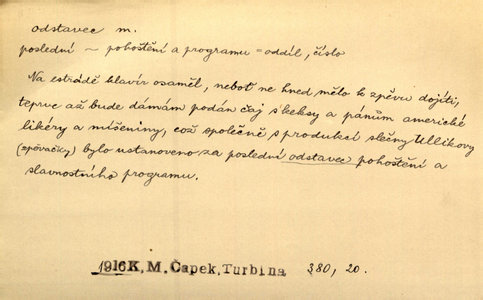 odstavec m.
poslední ~ pohoštění a programu = oddíl, číslo
Na estrádě klavír osaměl, neboť ne hned mělo k zpěvu dojíti,
teprve až bude dámám podán čaj s keksy a pánům americké
likéry a míšeniny, což společně s produkcí slečny Ullikovy
(zpěvačky) bylo ustanoveno za poslední odstavec pohoštění a
slavnostního programu.
1916 K, M. Čapek, Turbina 380, 20.